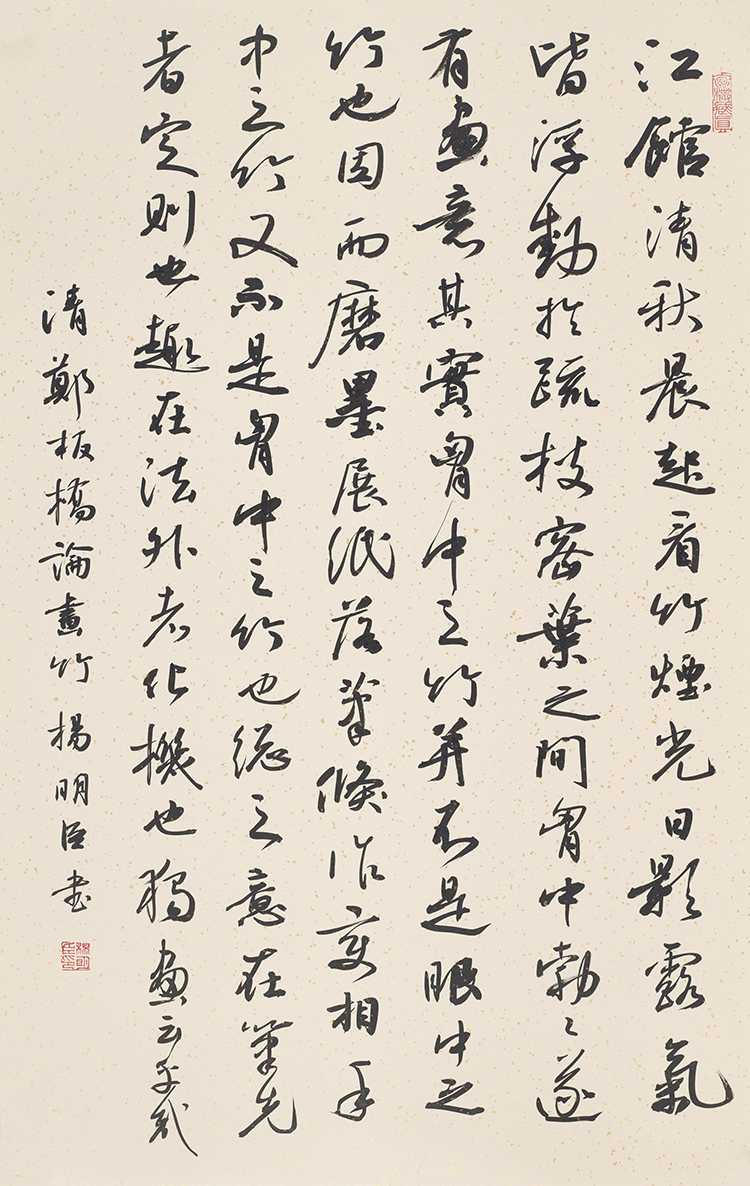 江館清秋晨起看竹煙光日影露氣
皆浮動於疏枝密葉之間胸中勃々遂
有畫意其實胸中之竹并不是眼中之
竹也因而磨墨展紙落筆倏作變相手
中之竹又不是胸中之竹也總之意在筆先
者定則也趣在法外者化機也獨畫云乎哉
清鄭板橋論畫竹 楊明臣書